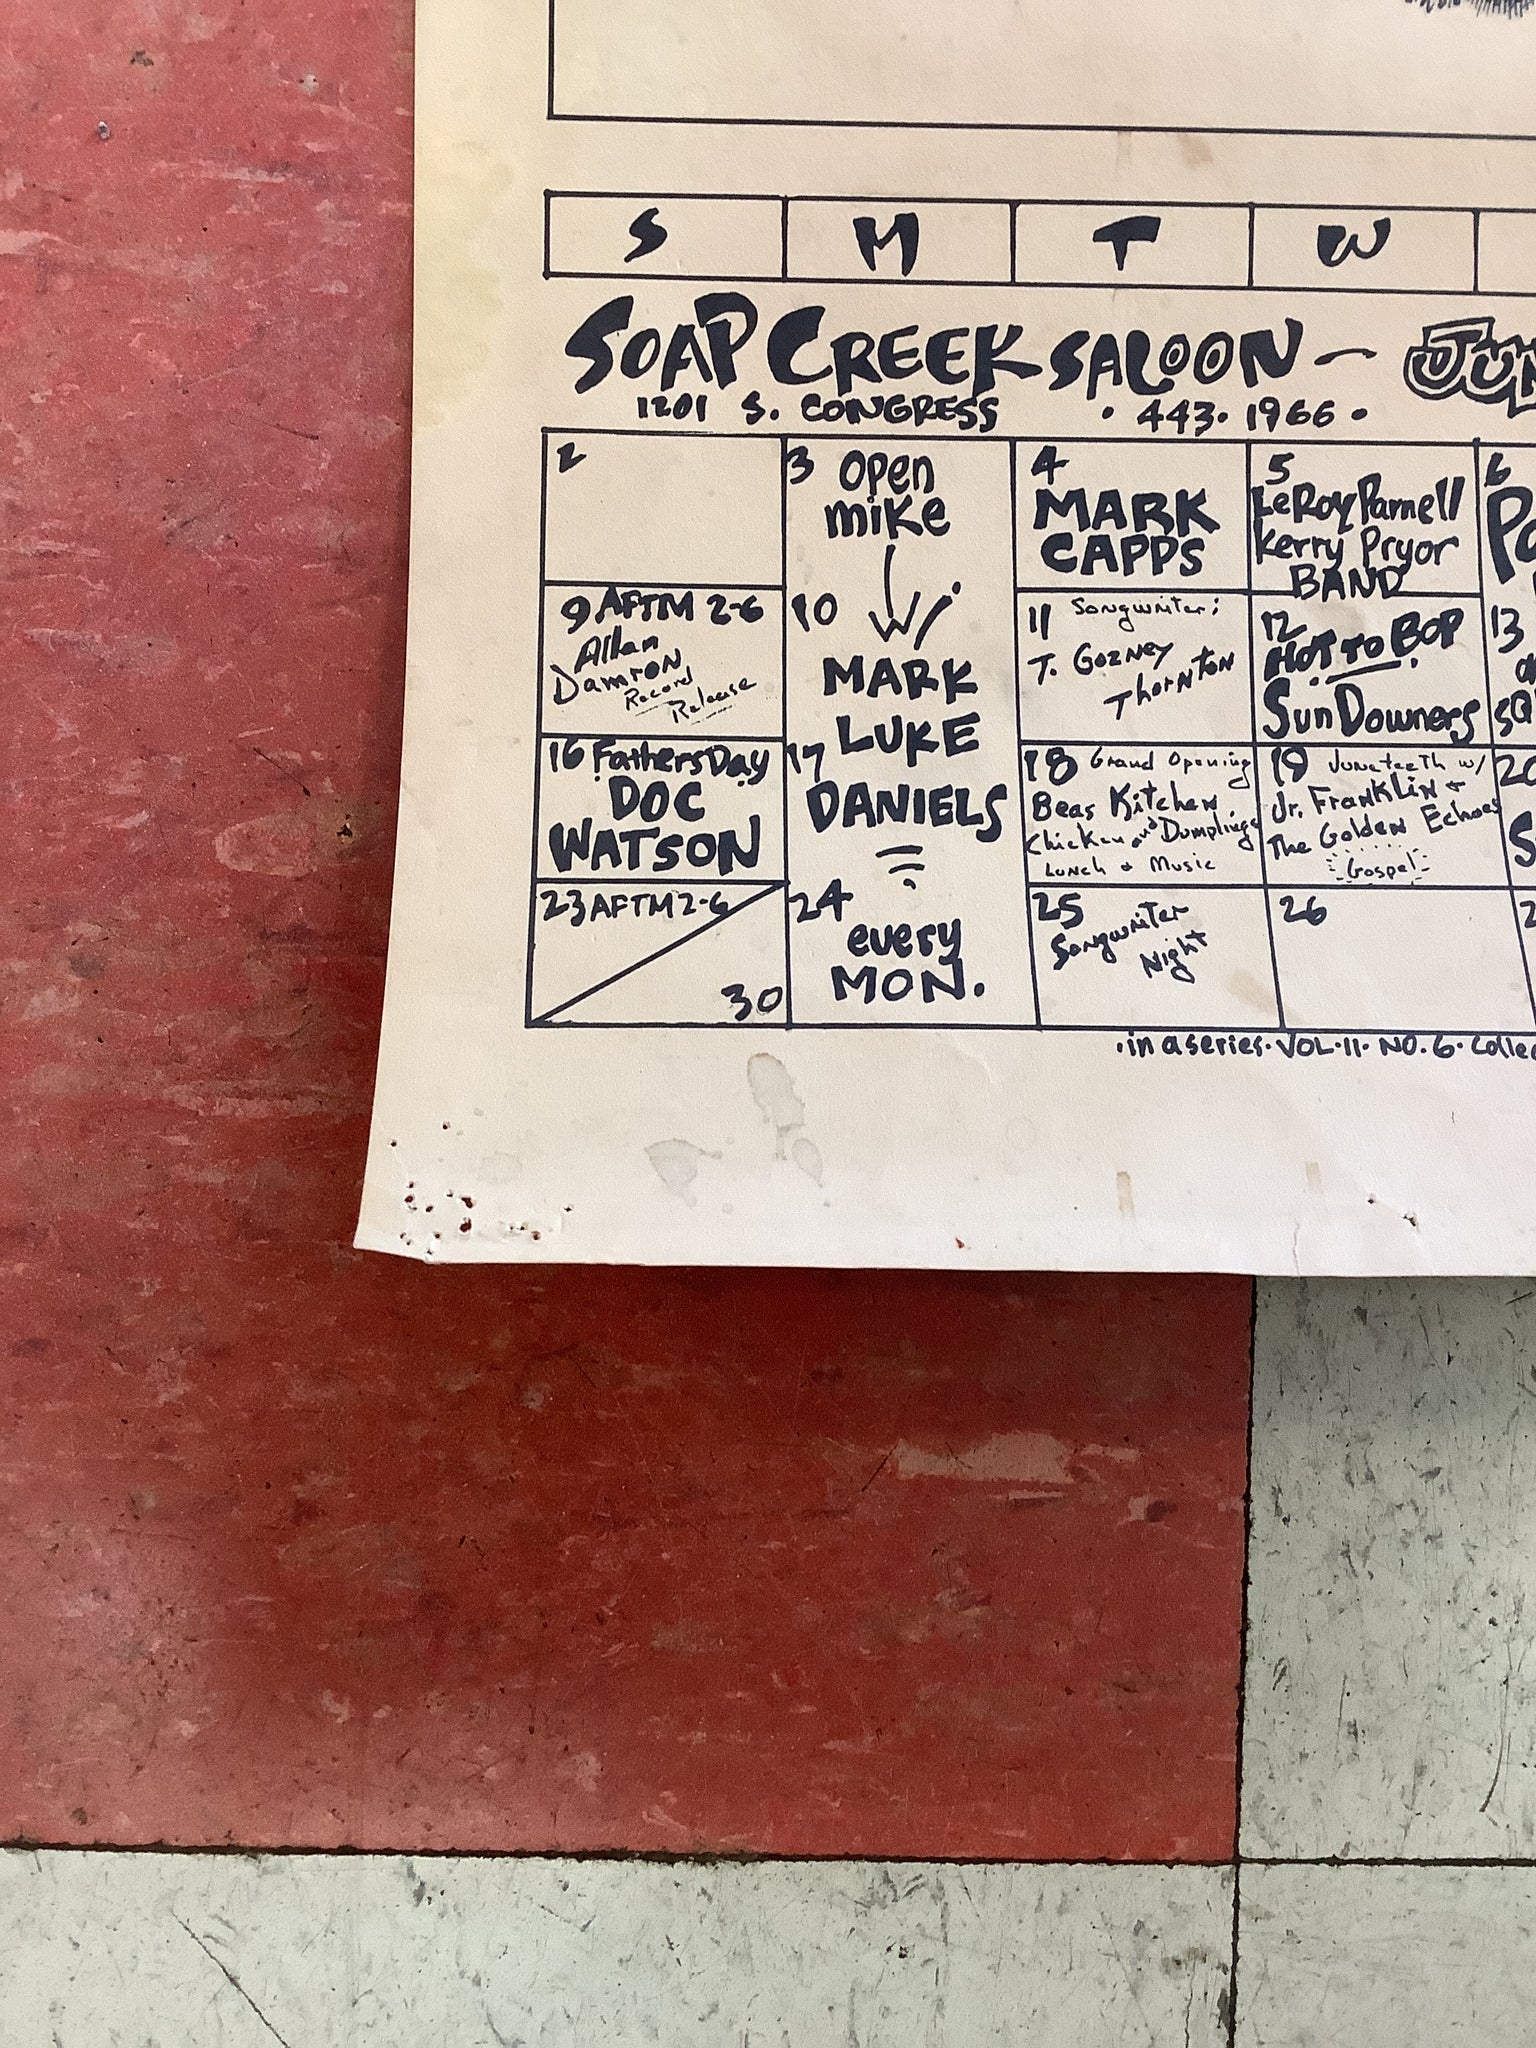 S M T W
SOAP CREEK SALOON — JUN
1201 S. CONGRESS · 443·1966 ·
2
3 open
mike
w/
MARK
LUKE
DANIELS
every
MON.
4
MARK
CAPPS
5
LeRoy Parnell
Kerry Pryor
BAND
6
9 AFTM 2-6
Allan
Damron
Record
Release
10
11 Songwriter:
T. Gozney
Thornton
12
HOT TO BOP
SunDowners
13
16 Fathers Day
DOC
WATSON
17
18 Grand Opening
Beas Kitchen
Chicken and Dumplings
Lunch + Music
19 Juneteeth w/
Jr. Franklin +
The Golden Echoes
Gospel
20
23 AFTM 2-6
30
24
25
Songwriter
Night
26
·in a series·VOL·11· NO. 6·